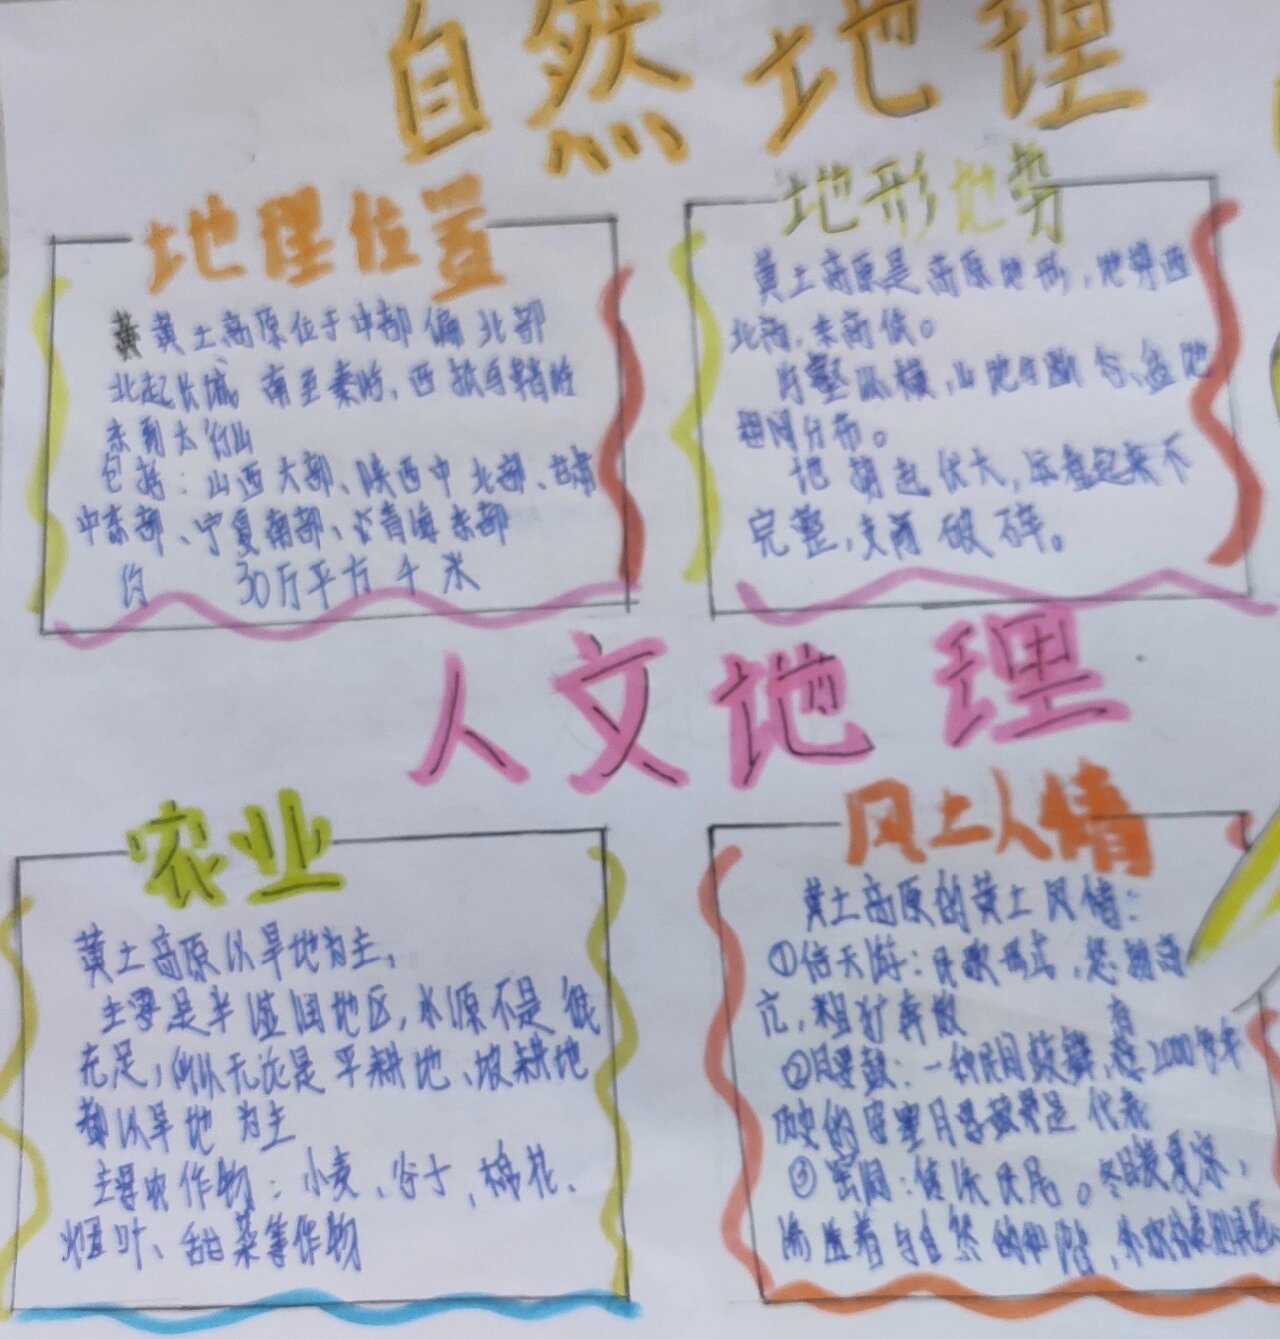 自然地理
地理位置
黄土高原位于中部偏北部
北起长城 南至秦岭、西抵乌鞘岭
东到太行山
包括：山西大部、陕西中北部、甘肃
中东部、宁夏南部、青海东部
约 30万平方千米
地形地势
黄土高原是高原地形，地势西
北高，东南低。
沟壑纵横，山地与断谷、盆地
相间分布。
地势起伏大，
完整，支离破碎。
人文地理
农业
黄土高原以旱地为主，
主要是半湿润地区，水源不是很
充足，所以无论是平耕地、坡耕地
都以旱地为主
主要农作物：小麦、谷子、棉花、
烟叶、甜菜等作物
风土人情
黄土高原的黄土风情：
①信天游：民歌形式，
亢，粗犷奔放
②腰鼓：一种民间鼓舞，有2000多年
历史的安塞腰鼓是代表
③窑洞：传统民居。冬暖夏凉，
着与自然的和谐，